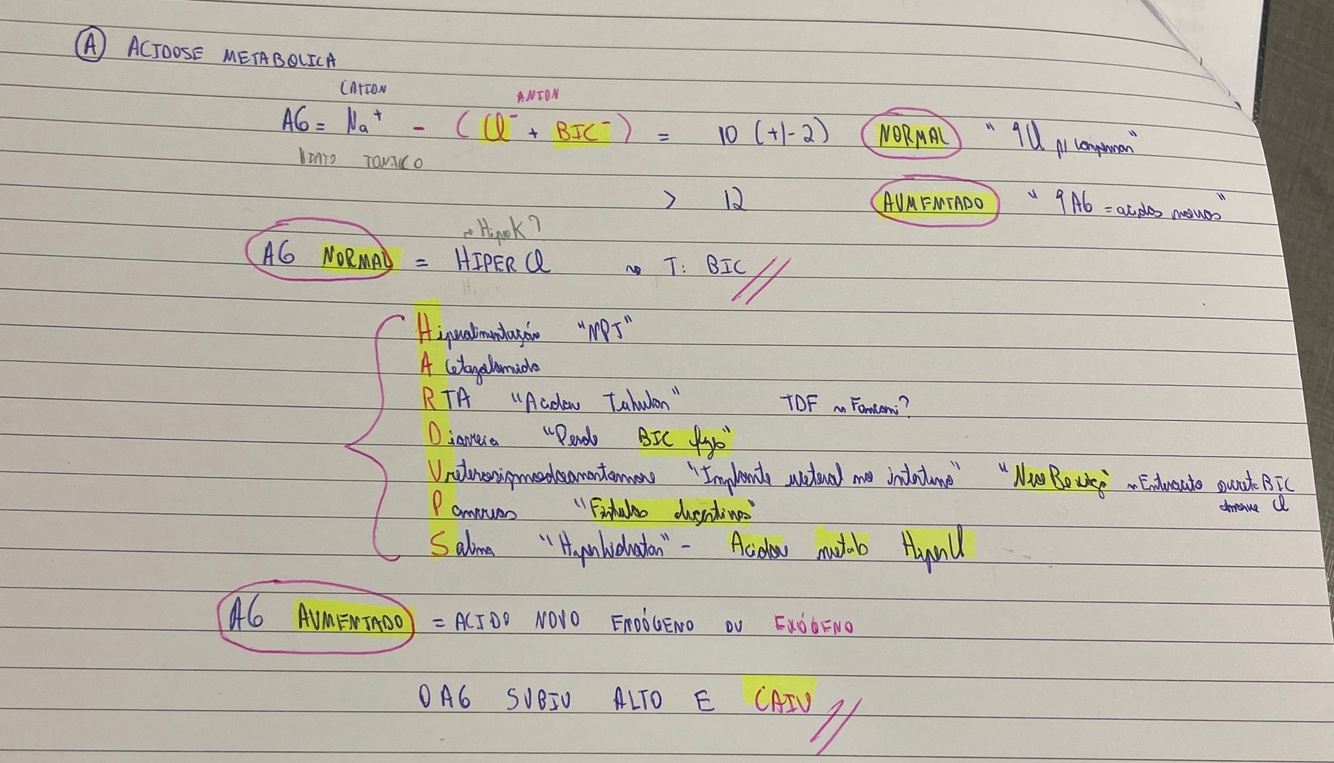 (A) ACIDOSE METABOLICA
CATION ANION
AG = Na+ - (Cl- + BIC-) = 10 (+/- 2) NORMAL "↑Cl p/ compensar"
TONICO
> 12 AUMENTADO "↑AG = acidos novos"
→ Hipok?
AG NORMAL = HIPER Cl ~> T: BIC //
Hiperalimentação "NPT"
Acetazolamida
RTA "Acidose Tubular" TDF ~> Fanconi?
Diarreia "Perde BIC"
"Implante ureteral no intestino" "Neo Bexiga" ~> Enterocito BIC
Cl
Pancreas "Fistulas digestivas"
Salina "Hiperhidratar" - Acidose metab HiperCl
AG AUMENTADO = ACIDO NOVO ENDÓGENO OU EXÓGENO
O AG SUBIU ALTO E CAIU //